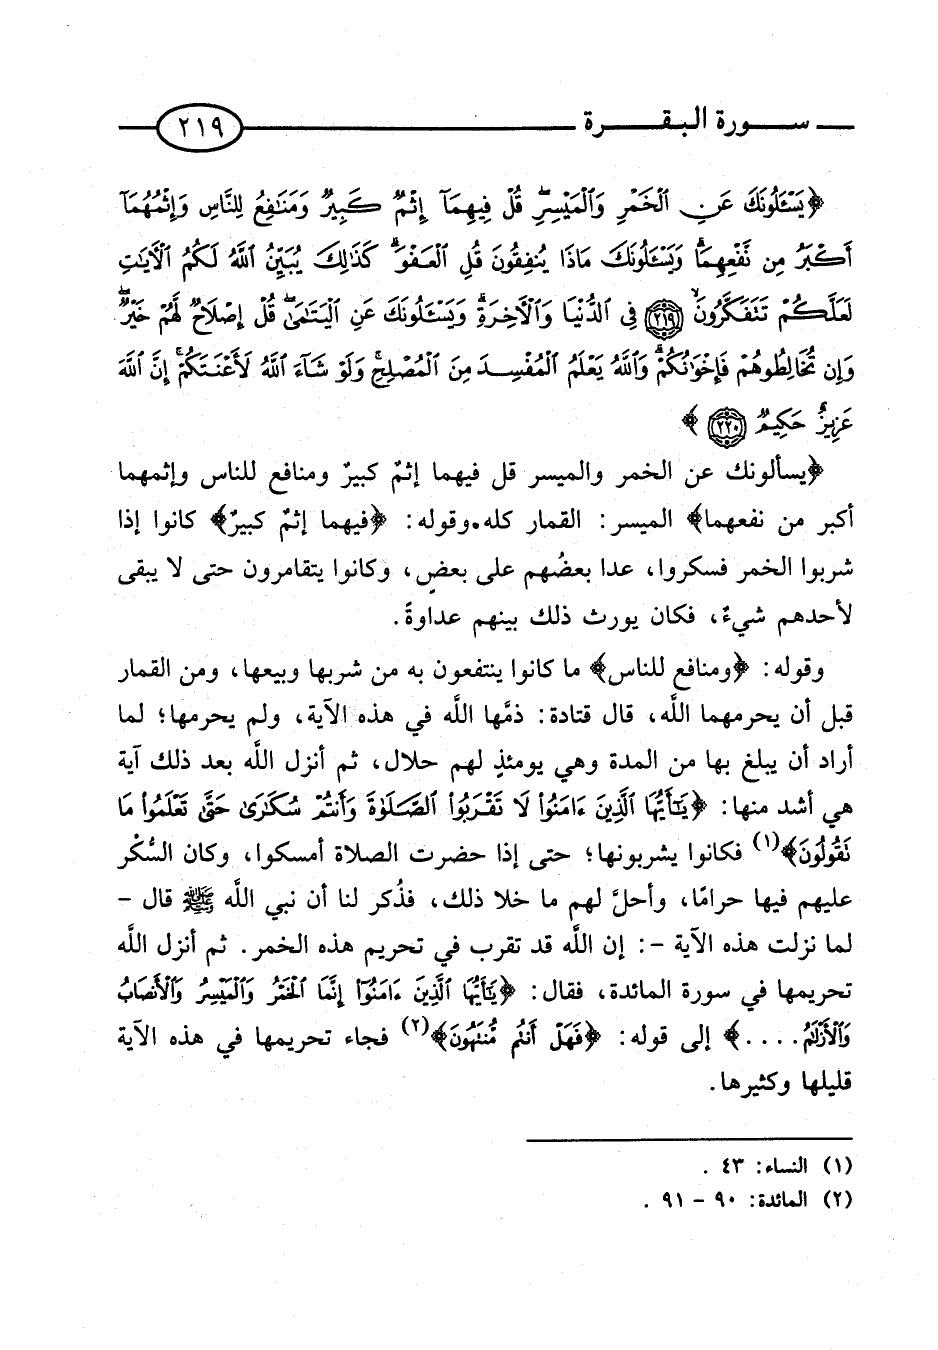 سورة البقرة ٢١٩
﴿يَسْـَٔلُونَكَ عَنِ ٱلْخَمْرِ وَٱلْمَيْسِرِۖ قُلْ فِيهِمَآ إِثْمٌ كَبِيرٌ وَمَنَٰفِعُ لِلنَّاسِ وَإِثْمُهُمَآ
أَكْبَرُ مِن نَّفْعِهِمَاۗ وَيَسْـَٔلُونَكَ مَاذَا يُنفِقُونَ قُلِ ٱلْعَفْوَۗ كَذَٰلِكَ يُبَيِّنُ ٱللَّهُ لَكُمُ ٱلْأٓيَٰتِ
لَعَلَّكُمْ تَتَفَكَّرُونَۙ ﴿٢١٩﴾ فِى ٱلدُّنْيَا وَٱلْأٓخِرَةِۗ وَيَسْـَٔلُونَكَ عَنِ ٱلْيَتَٰمَىٰۖ قُلْ إِصْلَاحٌ لَّهُمْ خَيْرٌۖ
وَإِن تُخَالِطُوهُمْ فَإِخْوَٰنُكُمْۚ وَٱللَّهُ يَعْلَمُ ٱلْمُفْسِدَ مِنَ ٱلْمُصْلِحِۚ وَلَوْ شَآءَ ٱللَّهُ لَأَعْنَتَكُمْۚ إِنَّ ٱللَّهَ
عَزِيزٌ حَكِيمٌ ﴿٢٢٠﴾ ﴾
﴿يسألونك عن الخمر والميسر قل فيهما إثمٌ كبيرٌ ومنافع للناس وإثمهما
أكبر من نفعهما﴾ الميسر: القمار كله. وقوله: ﴿فيهما إثمٌ كبيرٌ﴾ كانوا إذا
شربوا الخمر فسكروا، عدا بعضُهم على بعضٍ، وكانوا يتقامرون حتى لا يبقى
لأحدهم شيءٌ، فكان يورث ذلك بينهم عداوةً.
وقوله: ﴿ومنافع للناس﴾ ما كانوا ينتفعون به من شربها وبيعها، ومن القمار
قبل أن يحرمهما اللَّه، قال قتادة: ذمَّها اللَّه في هذه الآية، ولم يحرمها؛ لما
أراد أن يبلغ بها من المدة وهي يومئذٍ لهم حلال، ثم أنزل اللَّه بعد ذلك آية
هي أشد منها: ﴿يَٰٓأَيُّهَا ٱلَّذِينَ ءَامَنُوا۟ لَا تَقْرَبُوا۟ ٱلصَّلَوٰةَ وَأَنتُمْ سُكَٰرَىٰ حَتَّىٰ تَعْلَمُوا۟ مَا
تَقُولُونَ﴾(١) فكانوا يشربونها؛ حتى إذا حضرت الصلاة أمسكوا، وكان السُّكْر
عليهم فيها حرامًا، وأحلَّ لهم ما خلا ذلك، فذُكر لنا أن نبي اللَّه ﷺ قال –
لما نزلت هذه الآية –: إن اللَّه قد تقرب في تحريم هذه الخمر. ثم أنزل اللَّه
تحريمها في سورة المائدة، فقال: ﴿يَٰٓأَيُّهَا ٱلَّذِينَ ءَامَنُوٓا۟ إِنَّمَا ٱلْخَمْرُ وَٱلْمَيْسِرُ وَٱلْأَنصَابُ
وَٱلْأَزْلَٰمُ....﴾ إلى قوله: ﴿فَهَلْ أَنتُم مُّنتَهُونَ﴾(٢) فجاء تحريمها في هذه الآية
قليلها وكثيرها.
(١) النساء: ٤٣ .
(٢) المائدة: ٩٠ – ٩١ .